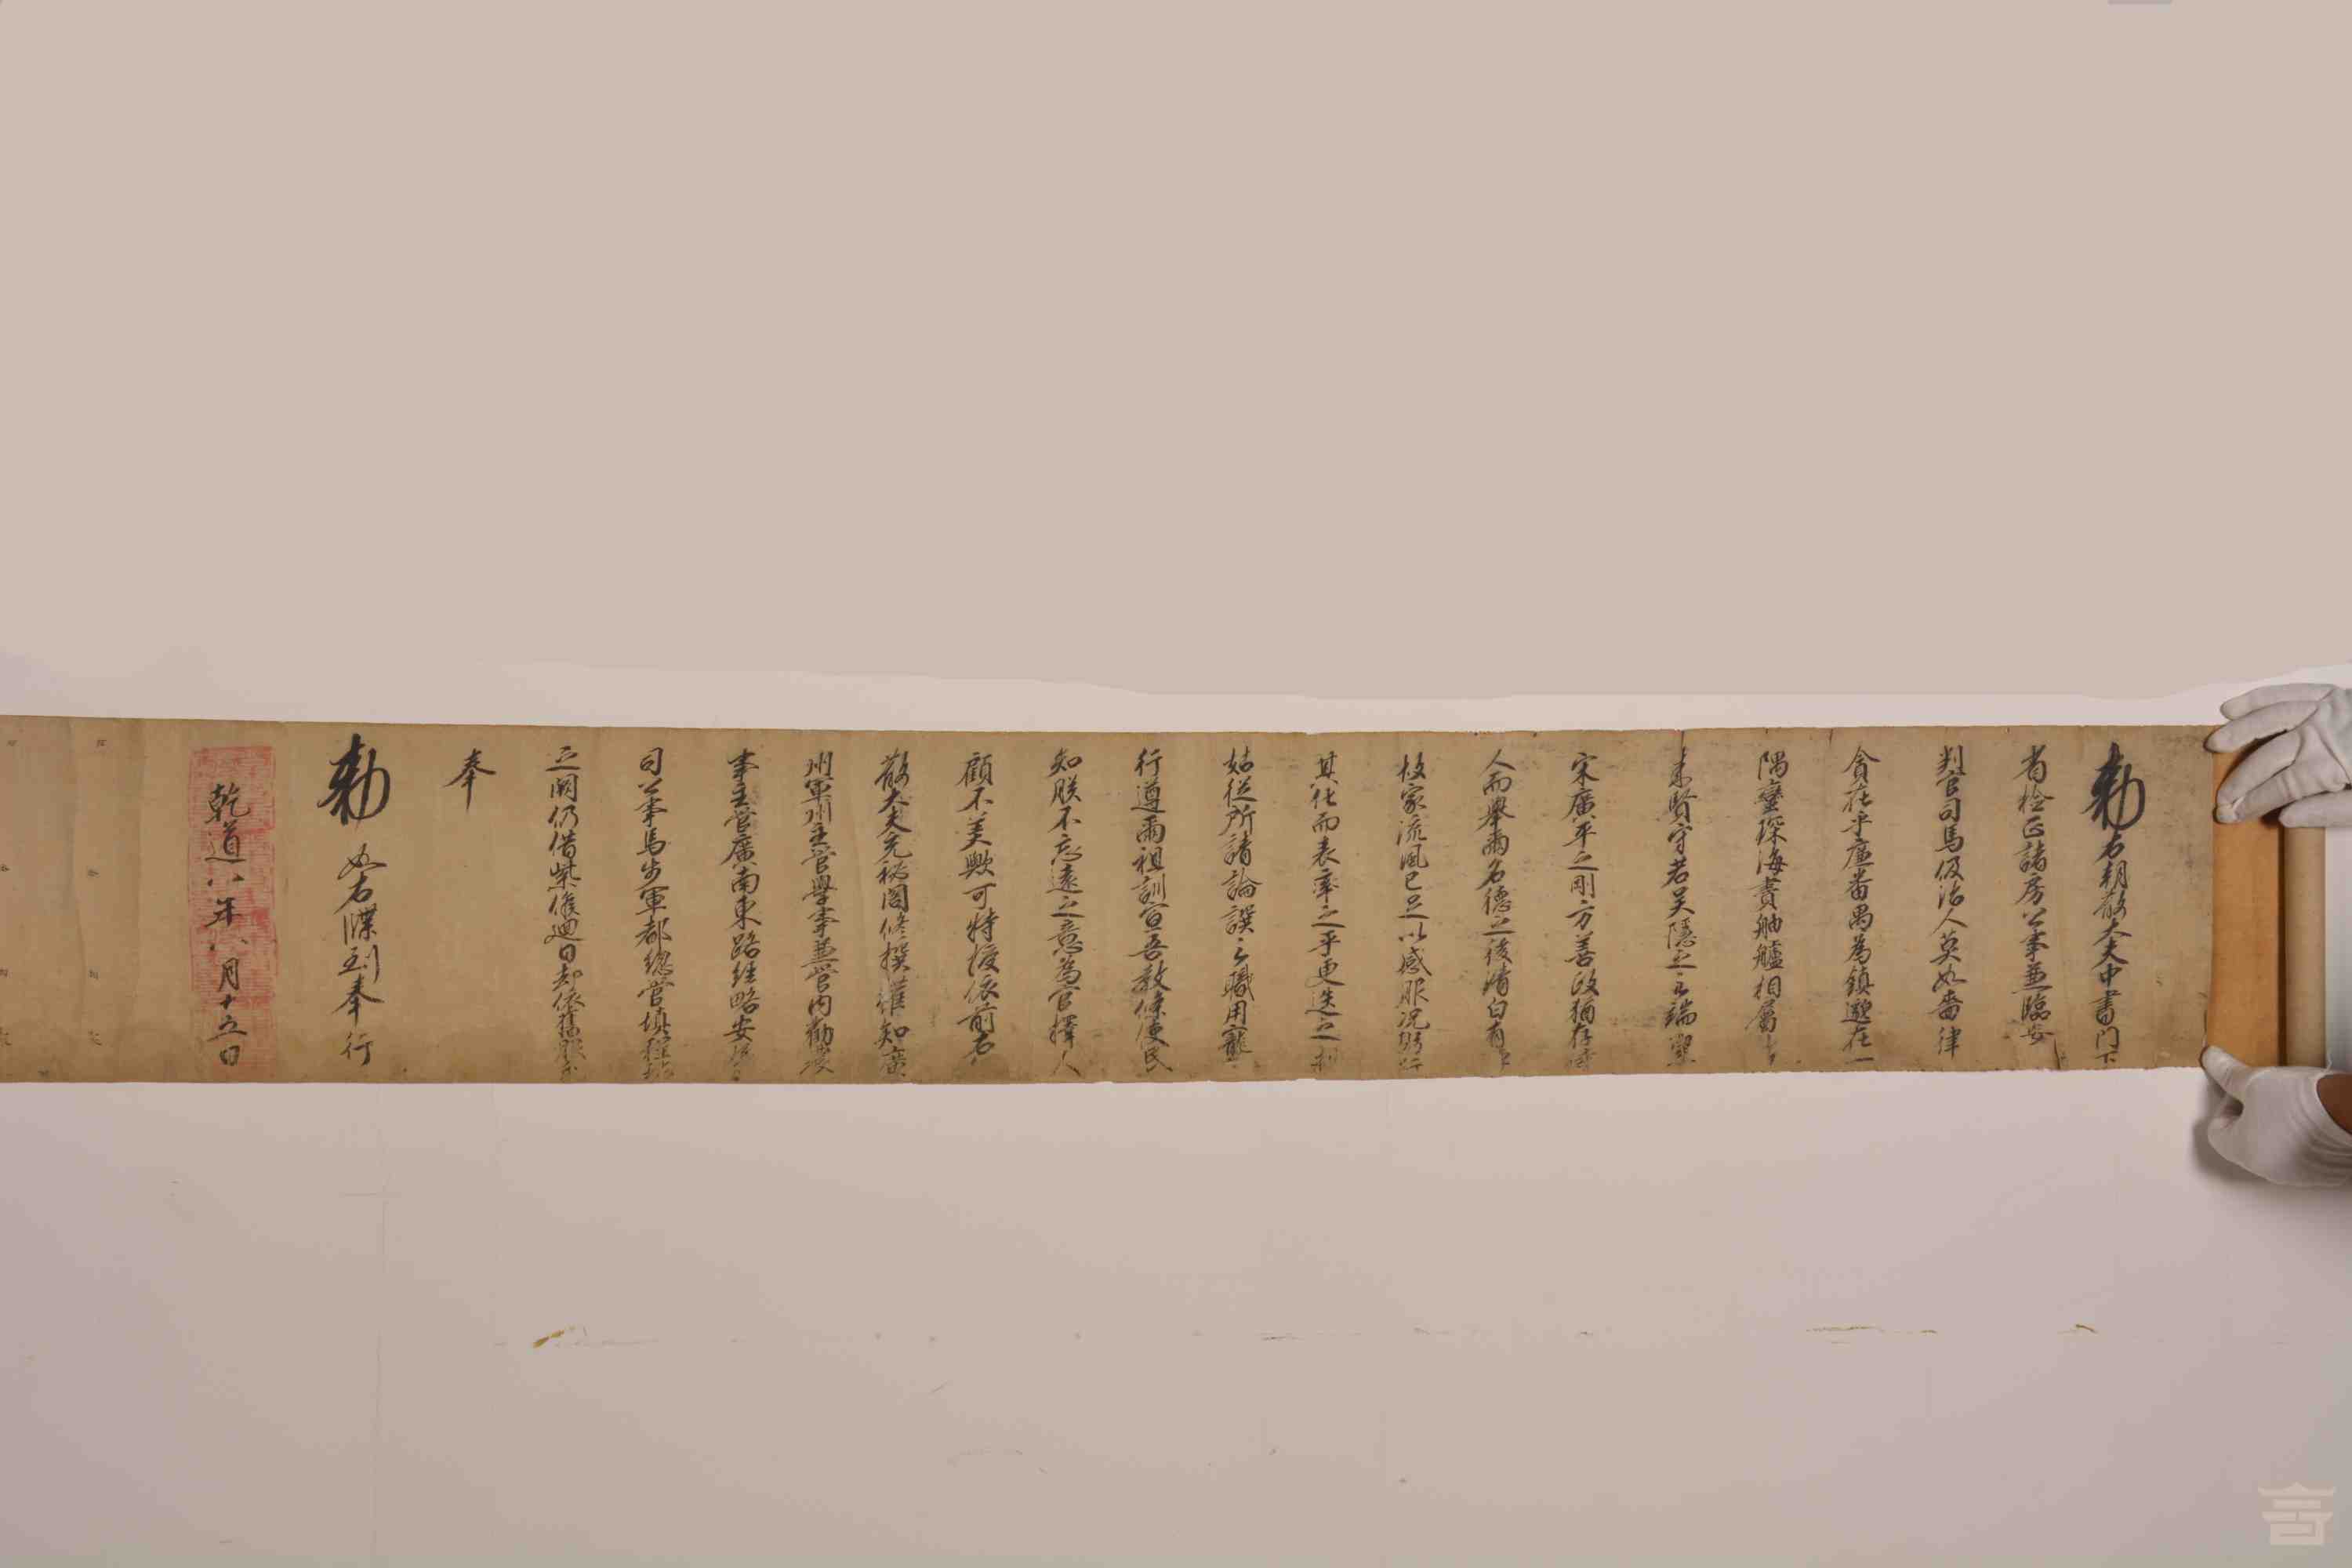 勅右朝散大夫中書門下
省檢正諸房公事兼臨安
判官司馬伋治人莫如嗇律
貪在乎廉番禺為鎮邈在一
隅蠻琛海賮舳艫相屬
来賢守若吴隱之之端
宋廣平之剛方善政猶存
人而舉爾名德之後清白有
校家流風已足以感服况
其化而表率之乎更迭之
姑從所請論譔之職用寵
行遵爾祖訓宣吾教條使民
知朕不忘遠之意為官擇人
顧不美歟可特授依前右
散大夫充秘閣修撰權知廣
州軍州主管學事兼管内勸農
事主管廣南東路經略安
司公事馬步軍都總管填
之闕仍借紫候迴日却依舊
奉
勅如右牒到奉行
乾道八年八月十五日